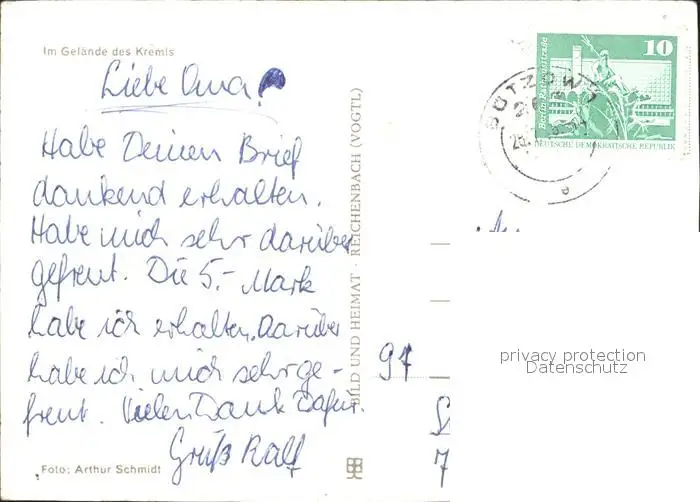 Im Gelände des Kremls
Liebe Oma!
Habe Deinen Brief
dankend erhalten.
Habe mich sehr darüber
gefreut. Die 5.- Mark
habe ich erhalten. Darüber
habe ich mich sehr ge-
freut. Vielen Dank dafür.
Gruß Ralf
Foto: Arthur Schmidt
BILD UND HEIMAT · REICHENBACH (VOGTL)
10
Berlin, Rathausstraße
DEUTSCHE DEMOKRATISCHE REPUBLIK
BÜTZOW
privacy protection
Datenschutz